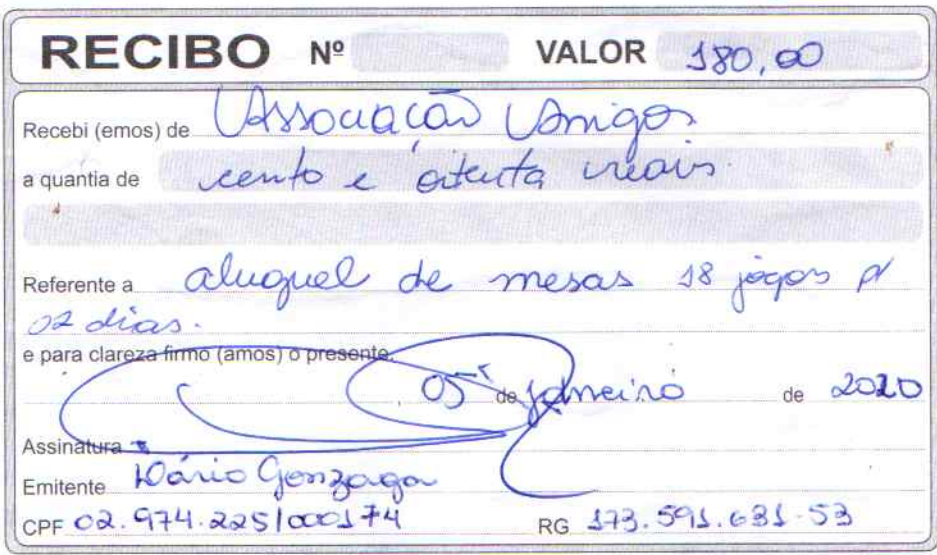 RECIBO Nº VALOR 180,00
Recebi (emos) de Associação Amigos
a quantia de cento e oitenta reais
Referente a aluguel de mesas 18 jogos p/
02 dias.
e para clareza firmo (amos) o presente.
05 de janeiro de 2020
Assinatura
Emitente Dário Gonzaga
CPF 02.974.225/000174 RG 173.591.631-53